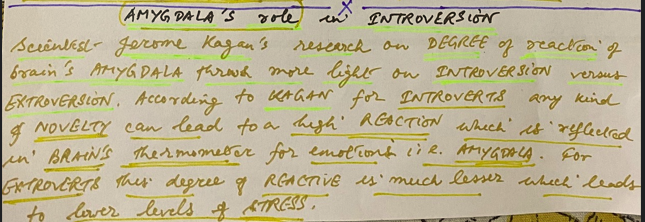 AMYGDALA'S role in INTROVERSION
Scientist Jerome Kagan's research on DEGREE of reaction of
brain's AMYGDALA throws more light on INTROVERSION versus
EXTROVERSION. According to KAGAN for INTROVERTS any kind
of NOVELTY can lead to a high REACTION which is reflected
in BRAIN'S thermometer for emotions i.e. AMYGDALA. For
EXTROVERTS this degree of REACTIVE is much lesser which leads
to lower levels of STRESS.